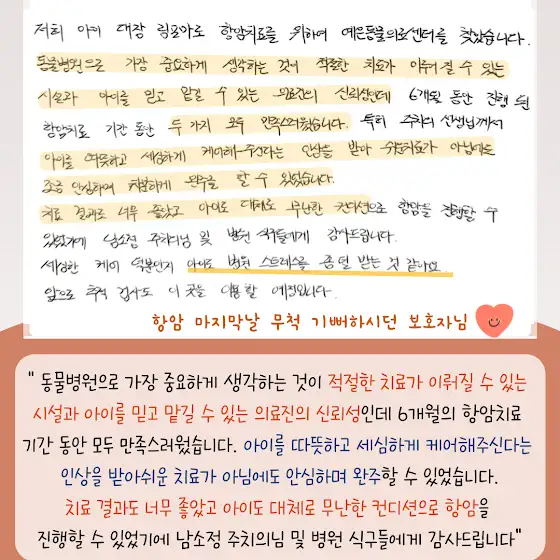 저희 아이 대장 림포마로 항암치료를 위하여 예은동물의료센터를 찾았습니다.
동물병원으로 가장 중요하게 생각하는 것이 적절한 치료가 이뤄질 수 있는
시설과 아이를 믿고 맡길 수 있는 의료진의 신뢰성인데 6개월 동안 진행 된
항암치료 기간 동안 두 가지 모두 만족스러웠습니다. 특히 주치의 선생님께서
아이를 따뜻하고 세심하게 케어해주신다는 인상을 받아 쉬운치료가 아님에도
조금 안심하며 차분하게 완주를 할 수 있었습니다.
치료 결과도 너무 좋았고 아이도 대체로 무난한 컨디션으로 항암을 진행할 수
있었기에 남소정 주치의님 및 병원 식구들에게 감사드립니다.
세심한 케어 덕분인지 아이도 병원 스트레스를 좀 덜 받는 것 같네요.
앞으로 추적 검사도 이 곳을 이용할 예정입니다.
항암 마지막날 무척 기뻐하시던 보호자님
" 동물병원으로 가장 중요하게 생각하는 것이 적절한 치료가 이뤄질 수 있는
시설과 아이를 믿고 맡길 수 있는 의료진의 신뢰성인데 6개월의 항암치료
기간 동안 모두 만족스러웠습니다. 아이를 따뜻하고 세심하게 케어해주신다는
인상을 받아쉬운 치료가 아님에도 안심하며 완주할 수 있었습니다.
치료 결과도 너무 좋았고 아이도 대체로 무난한 컨디션으로 항암을
진행할 수 있었기에 남소정 주치의님 및 병원 식구들에게 감사드립니다"